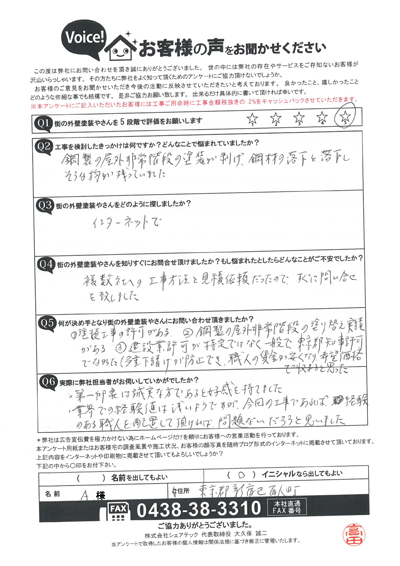 Voice! お客様の声をお聞かせください
この度は弊社にお問い合わせを頂き誠にありがとうございました。世の中には弊社の存在やサービスをご存知ないお客様が
沢山いらっしゃいます。その方たちに弊社をよく知って頂くためのアンケートにご協力頂けないでしょうか。
お客様のご意見をお聞かせいただき今後の活動に反映させていただきたいと考えております。良かったこと、嬉しかったこと
どのような些細な事でも結構です。是非ご協力お願い致します。出来るだけ具体的に書いて頂ければ幸いです。
※本アンケートにご記入いただいたお客様には工事ご用命時に工事金額税抜きの2%をキャッシュバックさせていただきます。
Q1 街の外壁塗装やさんを5段階で評価をお願いします ☆ ☆ ☆ ☆ ☆
Q2 工事を検討したきっかけは何ですか?どんなことで悩まれていましたか?
鋼製の屋外非常階段の塗装が剥げ、鋼材の落下
Q3 街の外壁塗装やさんをどのように探しましたか?
インターネットで
Q4 街の外壁塗装やさんを知りすぐにお問合せ頂けましたか?もし悩まれたとしたらどんなことがご不安でしたか?
複数社への工事方法と見積依頼だったので、すぐに問い合せ
を致しました
Q5 何が決め手となり街の外壁塗装やさんにお問い合わせ頂きましたか?
①塗装工事の許可がある ②鋼製の屋外非常階段の塗り替え実績
がある ③建設業許可が特定ではなく一般で東京都知事許可
Q6 実際に弊社担当者がお伺いしていかがでしたか?
・第一印象は誠実な方であると好感を持てました
・業界での経験値は浅いようですが、今回の工事であれば
ある職人を配置して頂ければ問題ないだろうと思いました
※弊社は広告宣伝費を極力かけない為にホームページだけを頼りにお客様への営業活動を行っております。
本アンケート用紙またはお客様宅の調査風景や施工状況、お客様の顔写真を随時ブログ形式のインターネットに掲載させて頂いております。
上記内容をインターネットや印刷物に掲載させて頂いてもよろしいでしょうか?
下記の中から〇印をお付下さい。
( )名前を出してもよい (○)イニシャルなら出してもよい
名前 A 様 ご住所 東京都新宿区百人町
FAX 0438-38-3310 本社直通 FAX番号
ご協力ありがとうございました。
株式会社シェアテック 代表取締役 大久保 誠二
当アンケートで取得したお客様の個人情報は関係法規に基づき厳正に管理いたします。